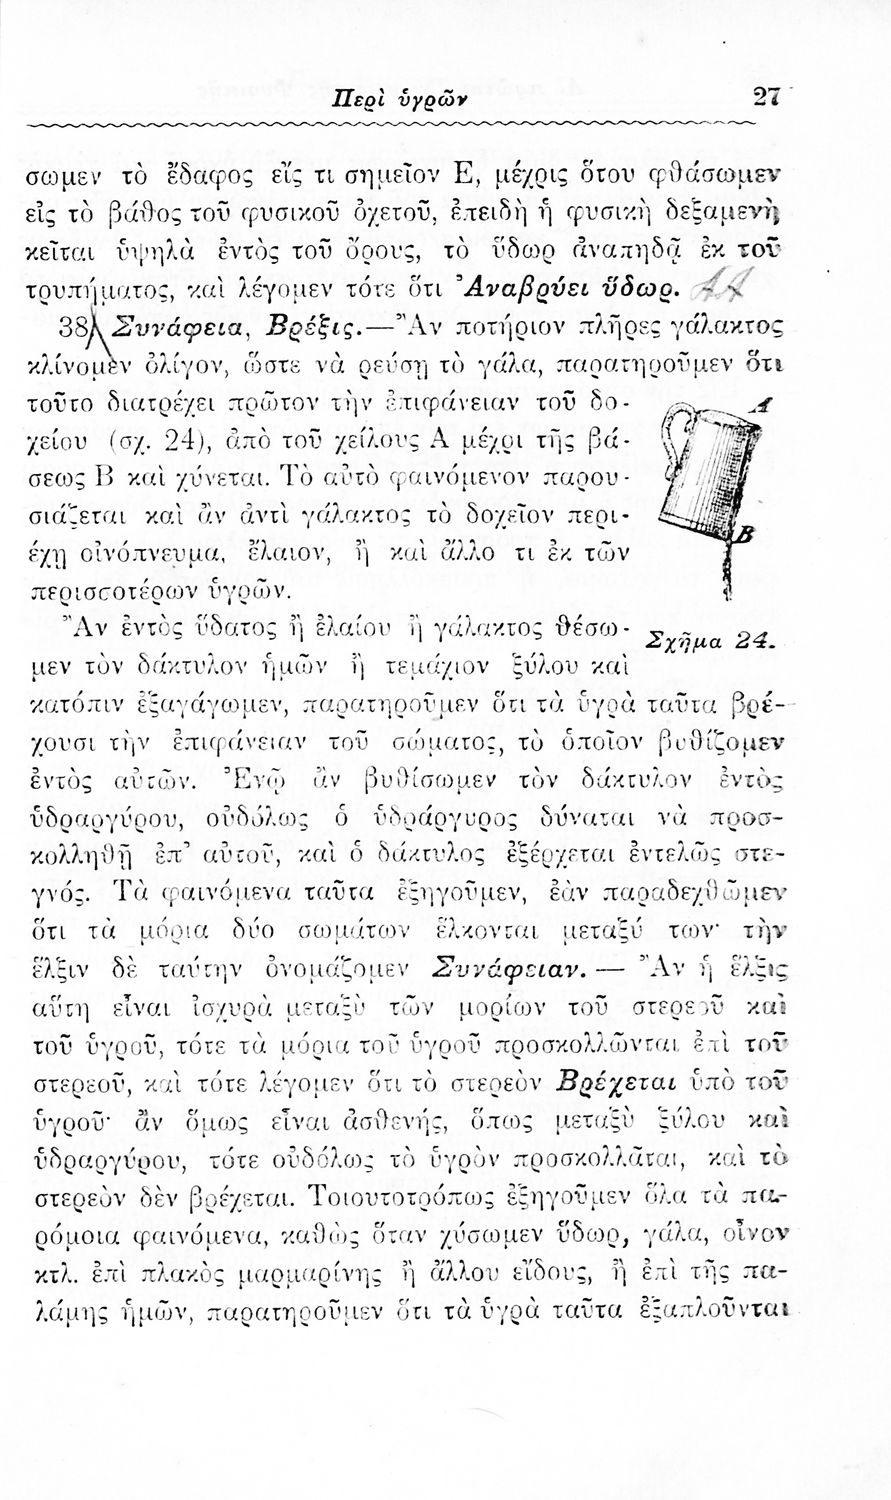 Περὶ ὑγρῶν 27
σωμεν τὸ ἔδαφος εἴς τι σημεῖον Ε, μέχρις ὅτου φθάσωμεν
εἰς τὸ βάθος τοῦ φυσικοῦ ὀχετοῦ, ἐπειδὴ ἡ φυσικὴ δεξαμενὴ
κεῖται ὑψηλὰ ἐντὸς τοῦ ὄρους, τὸ ὕδωρ ἀναπηδᾷ ἐκ τοῦ
τρυπήματος, καὶ λέγομεν τότε ὅτι Ἀναβρύει ὕδωρ.
38 Συνάφεια, Βρέξις.—Ἂν ποτήριον πλῆρες γάλακτος
κλίνομεν ὀλίγον, ὥστε νὰ ρεύσῃ τὸ γάλα, παρατηροῦμεν ὅτι
τοῦτο διατρέχει πρῶτον τὴν ἐπιφάνειαν τοῦ δο-
χείου (σχ. 24), ἀπὸ τοῦ χείλους Α μέχρι τῆς βά-
σεως Β καὶ χύνεται. Τὸ αὐτὸ φαινόμενον παρου-
σιάζεται καὶ ἂν ἀντὶ γάλακτος τὸ δοχεῖον περι-
έχῃ οἰνόπνευμα, ἔλαιον, ἢ καὶ ἄλλο τι ἐκ τῶν
περισσοτέρων ὑγρῶν.
A
B
Σχῆμα 24.
Ἂν ἐντὸς ὕδατος ἢ ἐλαίου ἢ γάλακτος θέσω-
μεν τὸν δάκτυλον ἡμῶν ἢ τεμάχιον ξύλου καὶ
κατόπιν ἐξαγάγωμεν, παρατηροῦμεν ὅτι τὰ ὑγρὰ ταῦτα βρέ-
χουσι τὴν ἐπιφάνειαν τοῦ σώματος, τὸ ὁποῖον βυθίζομεν
ἐντὸς αὐτῶν. Ἐνῷ ἂν βυθίσωμεν τὸν δάκτυλον ἐντὸς
ὑδραργύρου, οὐδόλως ὁ ὑδράργυρος δύναται νὰ προσ-
κολληθῇ ἐπ’ αὐτοῦ, καὶ ὁ δάκτυλος ἐξέρχεται ἐντελῶς στε-
γνός. Τὰ φαινόμενα ταῦτα ἐξηγοῦμεν, ἐὰν παραδεχθῶμεν
ὅτι τὰ μόρια δύο σωμάτων ἕλκονται μεταξύ των· τὴν
ἕλξιν δὲ ταύτην ὀνομάζομεν Συνάφειαν. — Ἂν ἡ ἕλξις
αὕτη εἶναι ἰσχυρὰ μεταξὺ τῶν μορίων τοῦ στερεοῦ καὶ
τοῦ ὑγροῦ, τότε τὰ μόρια τοῦ ὑγροῦ προσκολλῶνται ἐπὶ τοῦ
στερεοῦ, καὶ τότε λέγομεν ὅτι τὸ στερεὸν Βρέχεται ὑπὸ τοῦ
ὑγροῦ· ἂν ὅμως εἶναι ἀσθενής, ὅπως μεταξὺ ξύλου καὶ
ὑδραργύρου, τότε οὐδόλως τὸ ὑγρὸν προσκολλᾶται, καὶ τὸ
στερεὸν δὲν βρέχεται. Τοιουτοτρόπως ἐξηγοῦμεν ὅλα τὰ πα-
ρόμοια φαινόμενα, καθὼς ὅταν χύσωμεν ὕδωρ, γάλα, οἶνον
κτλ. ἐπὶ πλακὸς μαρμαρίνης ἢ ἄλλου εἴδους, ἢ ἐπὶ τῆς πα-
λάμης ἡμῶν, παρατηροῦμεν ὅτι τὰ ὑγρὰ ταῦτα ἐξαπλοῦνται